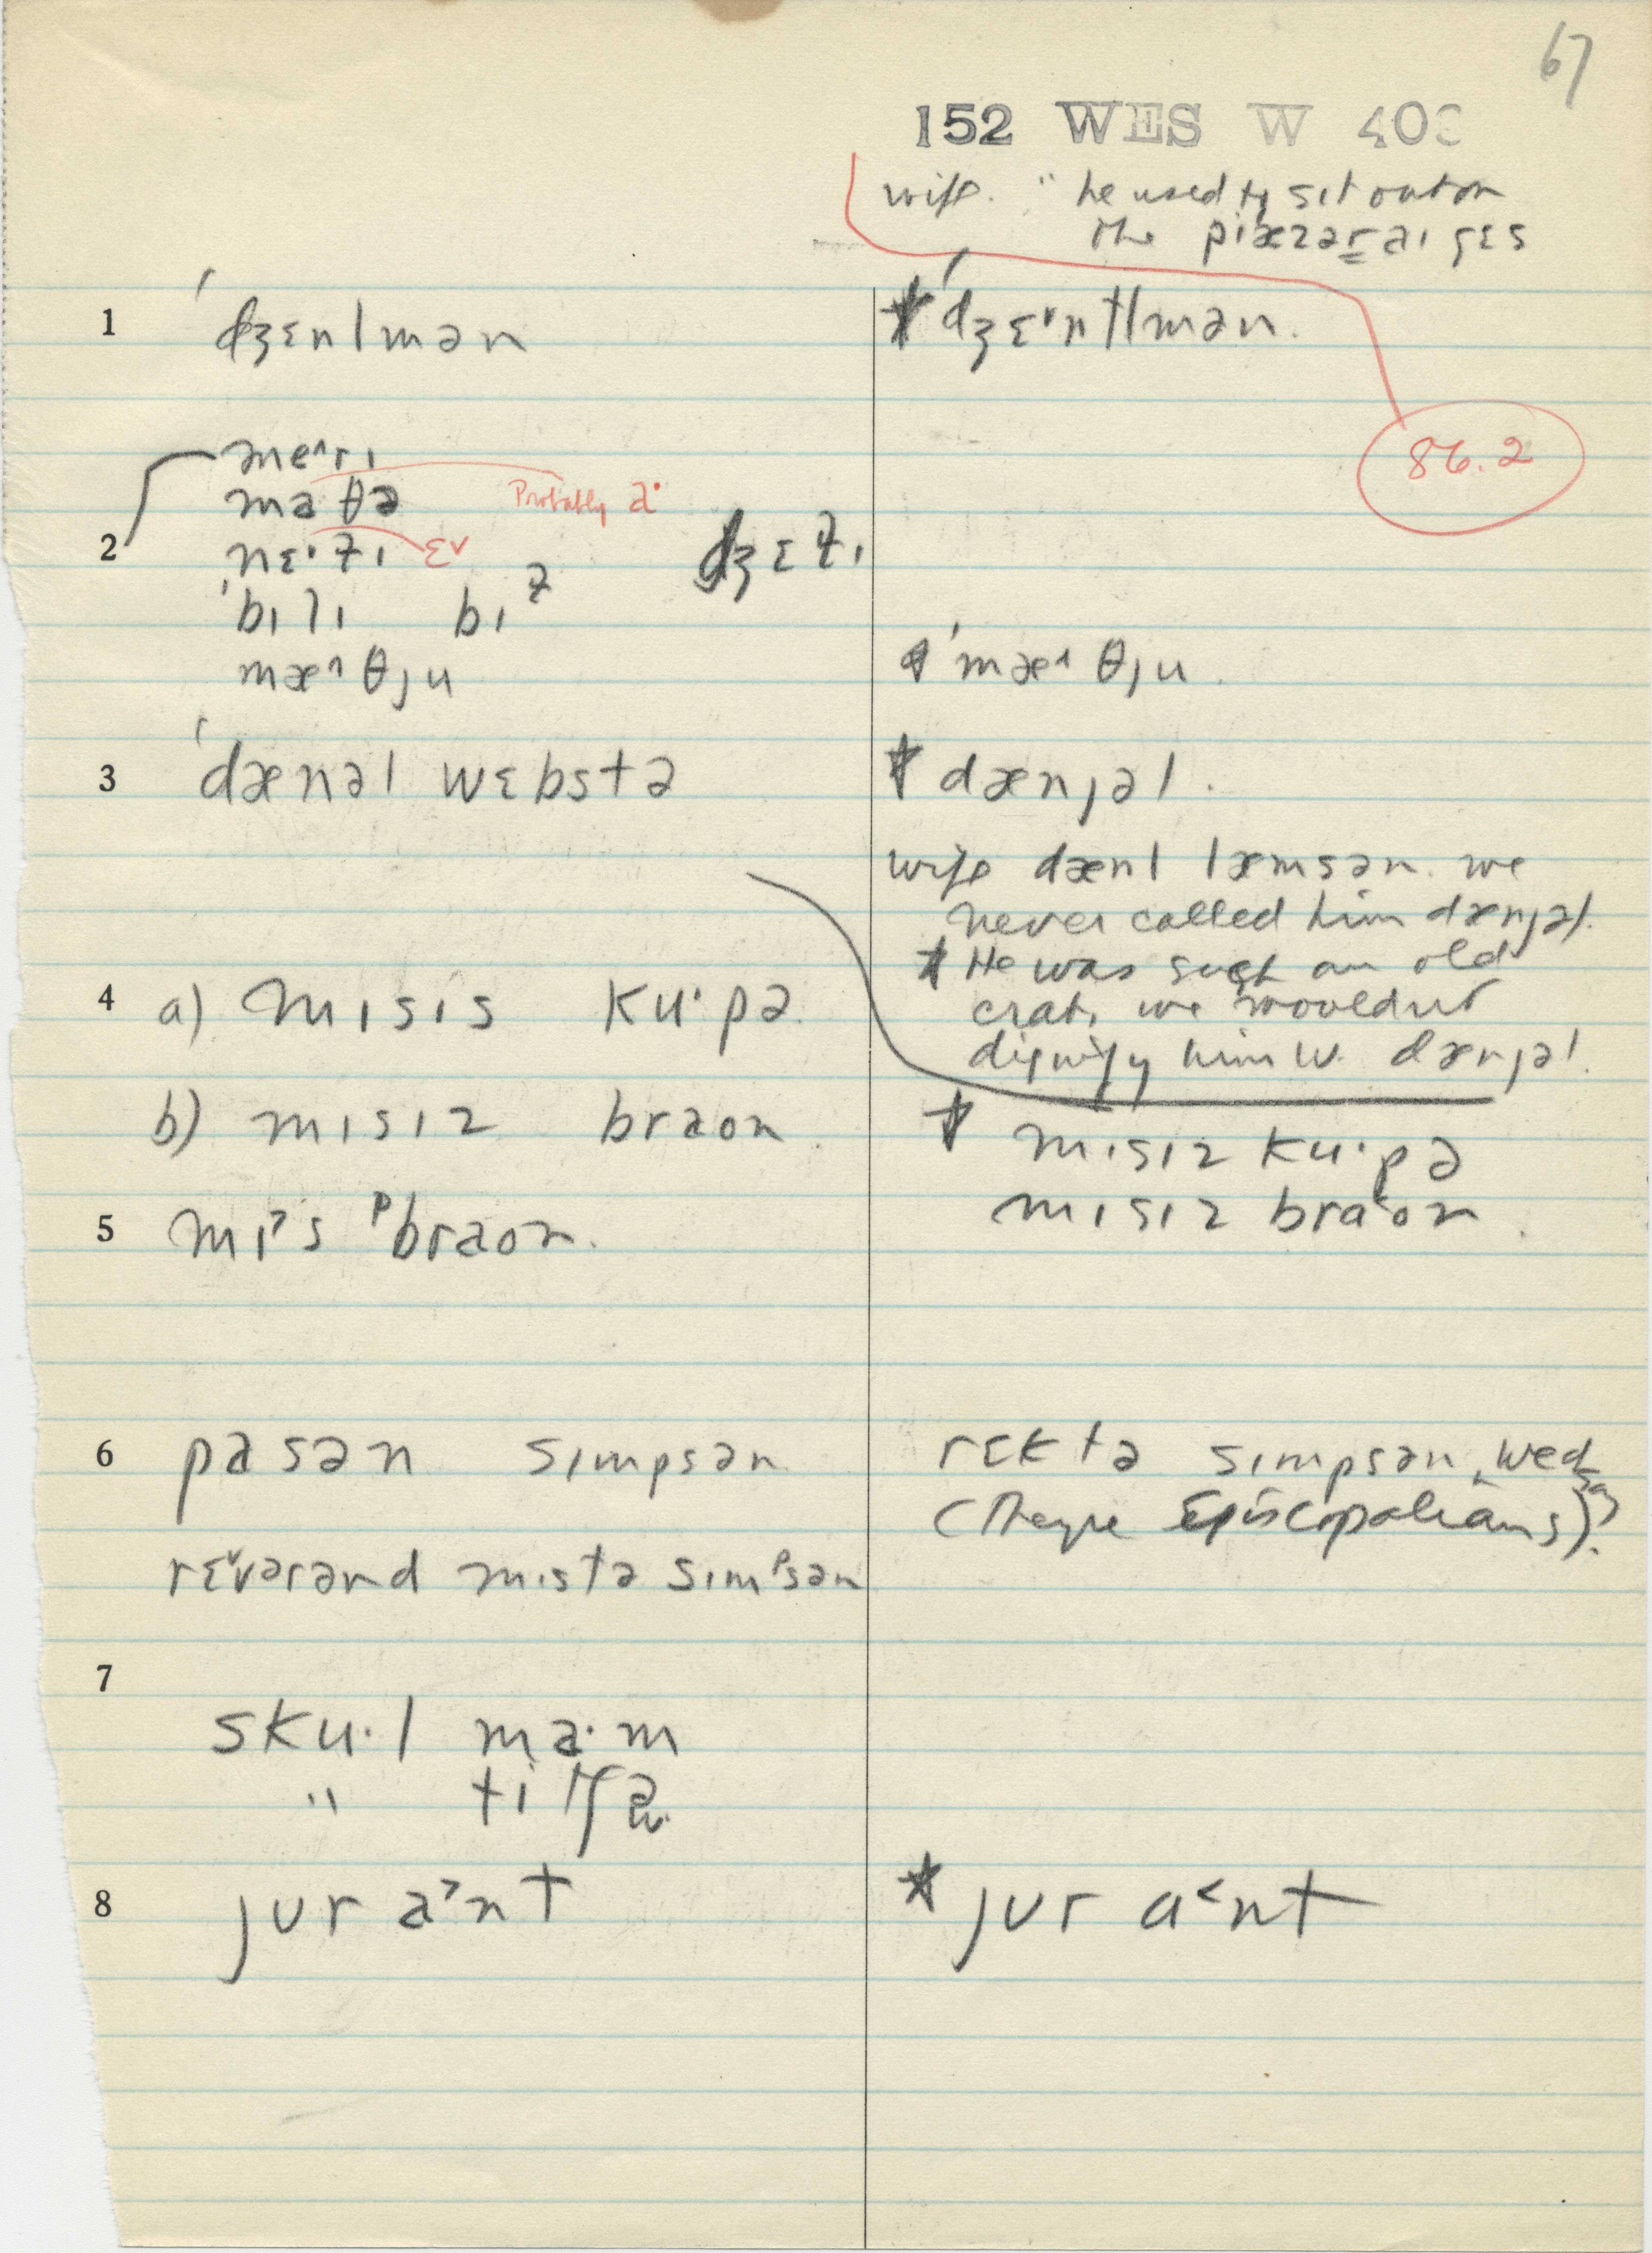 67
152 WES W 40
wife. " he used to sit out on
the piæzəraɪ ʒɛs
1 ˈdʒɛnlmən * ˈdʒɛ˅ntlmən.
86.2
me^rɪ
maθə Probably a·
2 nɛ·t̬ɪ ɛ˅ dʒɛt̬ɪ
ˈbɪlɪ bɪɫ
mæ^θju * ˈmæ^θju.
3 ˈdænəl wɛbstə * dænjəl.
wife dænl læmsən. we
never called him dænjəl.
* He was such an old
crab, we wouldnt
dignify him w. dænjəl.
4 a) mɪsɪs ku·pə
b) mɪsɪz braon. * mɪsɪz ku·pə
mɪsɪz braon.
5 mɪ˃s braon.
6 pasən sɪmpsən rɛktə sɪmpsən, we'd say
(They're Episcopalians).
rɛ˅vərənd mɪstə sɪmᵖsən
7
sku·l ma·m
" titʃə
8 jur a˃nt * jur ɑ˂nt